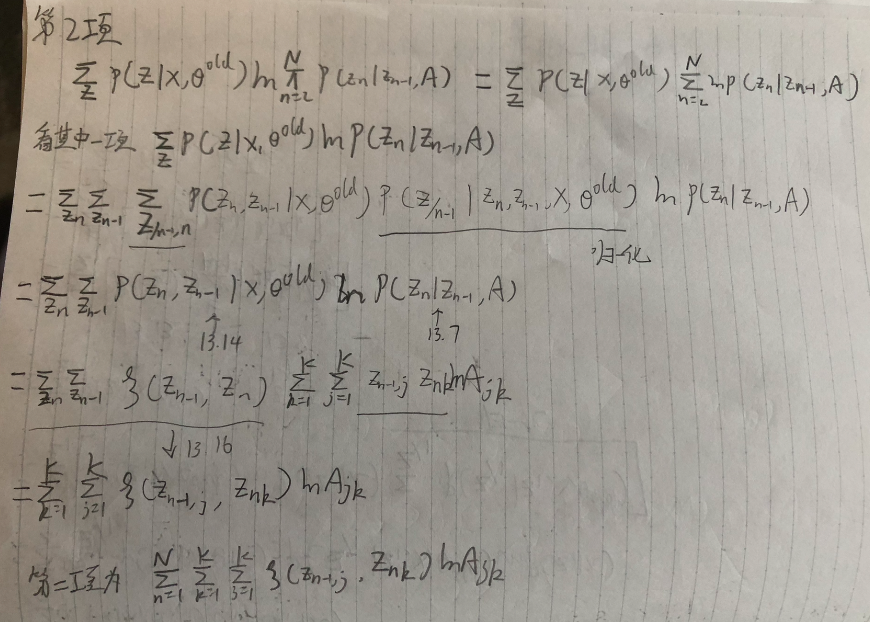 第2项
∑_Z P(Z|X,θ^old) ln ∏_{n=2}^N P(z_n|z_{n-1},A) = ∑_Z P(Z|X,θ^old) ∑_{n=2}^N ln p(z_n|z_{n-1},A)
看其中一项 ∑_Z P(Z|X,θ^old) ln P(z_n|z_{n-1},A)
= ∑_{z_n} ∑_{z_{n-1}} ∑_{Z/n-1,n} P(z_n,z_{n-1}|X,θ^old) P(Z/n-1|z_n,z_{n-1},X,θ^old) ln P(z_n|z_{n-1},A)
归一化
= ∑_{z_n} ∑_{z_{n-1}} P(z_n,z_{n-1}|X,θ^old) ln P(z_n|z_{n-1},A)
↑ 13.14 ↑ 13.7
= ∑_{z_n} ∑_{z_{n-1}} ξ(z_{n-1},z_n) ∑_{k=1}^K ∑_{j=1}^K z_{n-1,j} z_{nk} ln A_{jk}
↓ 13.16
= ∑_{k=1}^K ∑_{j=1}^K ξ(z_{n-1,j},z_{nk}) ln A_{jk}
第二项为 ∑_{n=1}^N ∑_{k=1}^K ∑_{j=1}^K ξ(z_{n-1,j},z_{nk}) ln A_{jk}